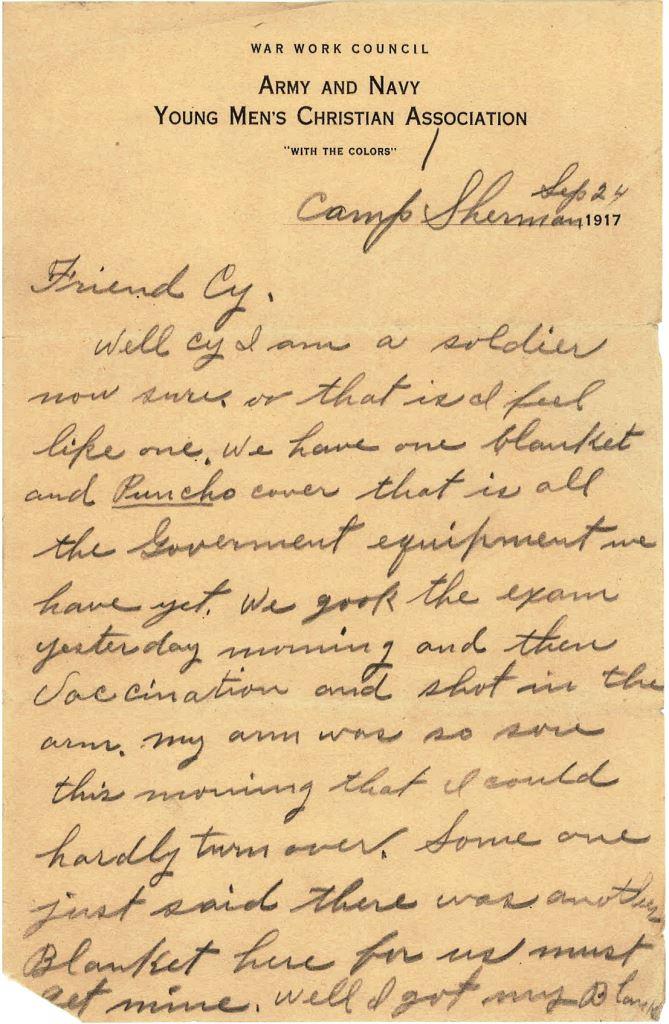 WAR WORK COUNCIL
ARMY AND NAVY
YOUNG MEN'S CHRISTIAN ASSOCIATION
"WITH THE COLORS"
Sep 24
Camp Sherman, 1917
Friend Cy.
Well cy I am a soldier
now sure. or that is I feel
like one. We have one blanket
and Puncho cover that is all
the Goverment equipment we
have yet. We gook the exam
yesterday morning and then
Vaccination and shot in the
arm. my arm was so sore
this morning that I could
hardly turn over. Some one
just said there was another
Blanket here for us must
get mine. Well I got my